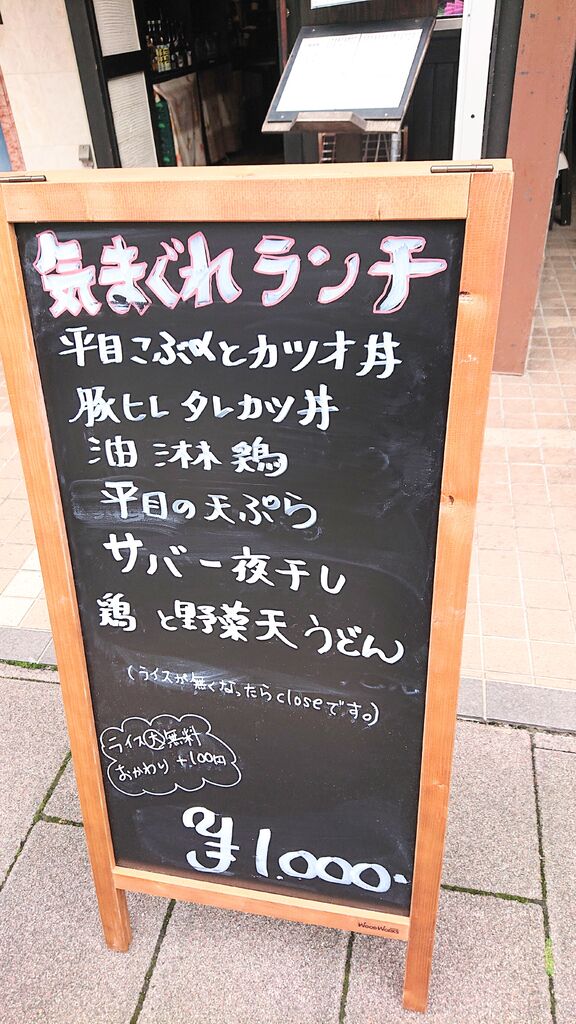 気まぐれランチ
平目こぶ〆とカツオ丼
豚ヒレタレカツ丼
油淋鶏
平目の天ぷら
サバ一夜干し
鶏と野菜天うどん
(ライスが無くなったらcloseです。)
ライス大無料
おかわり +100円
¥1.000-
WoodWorks